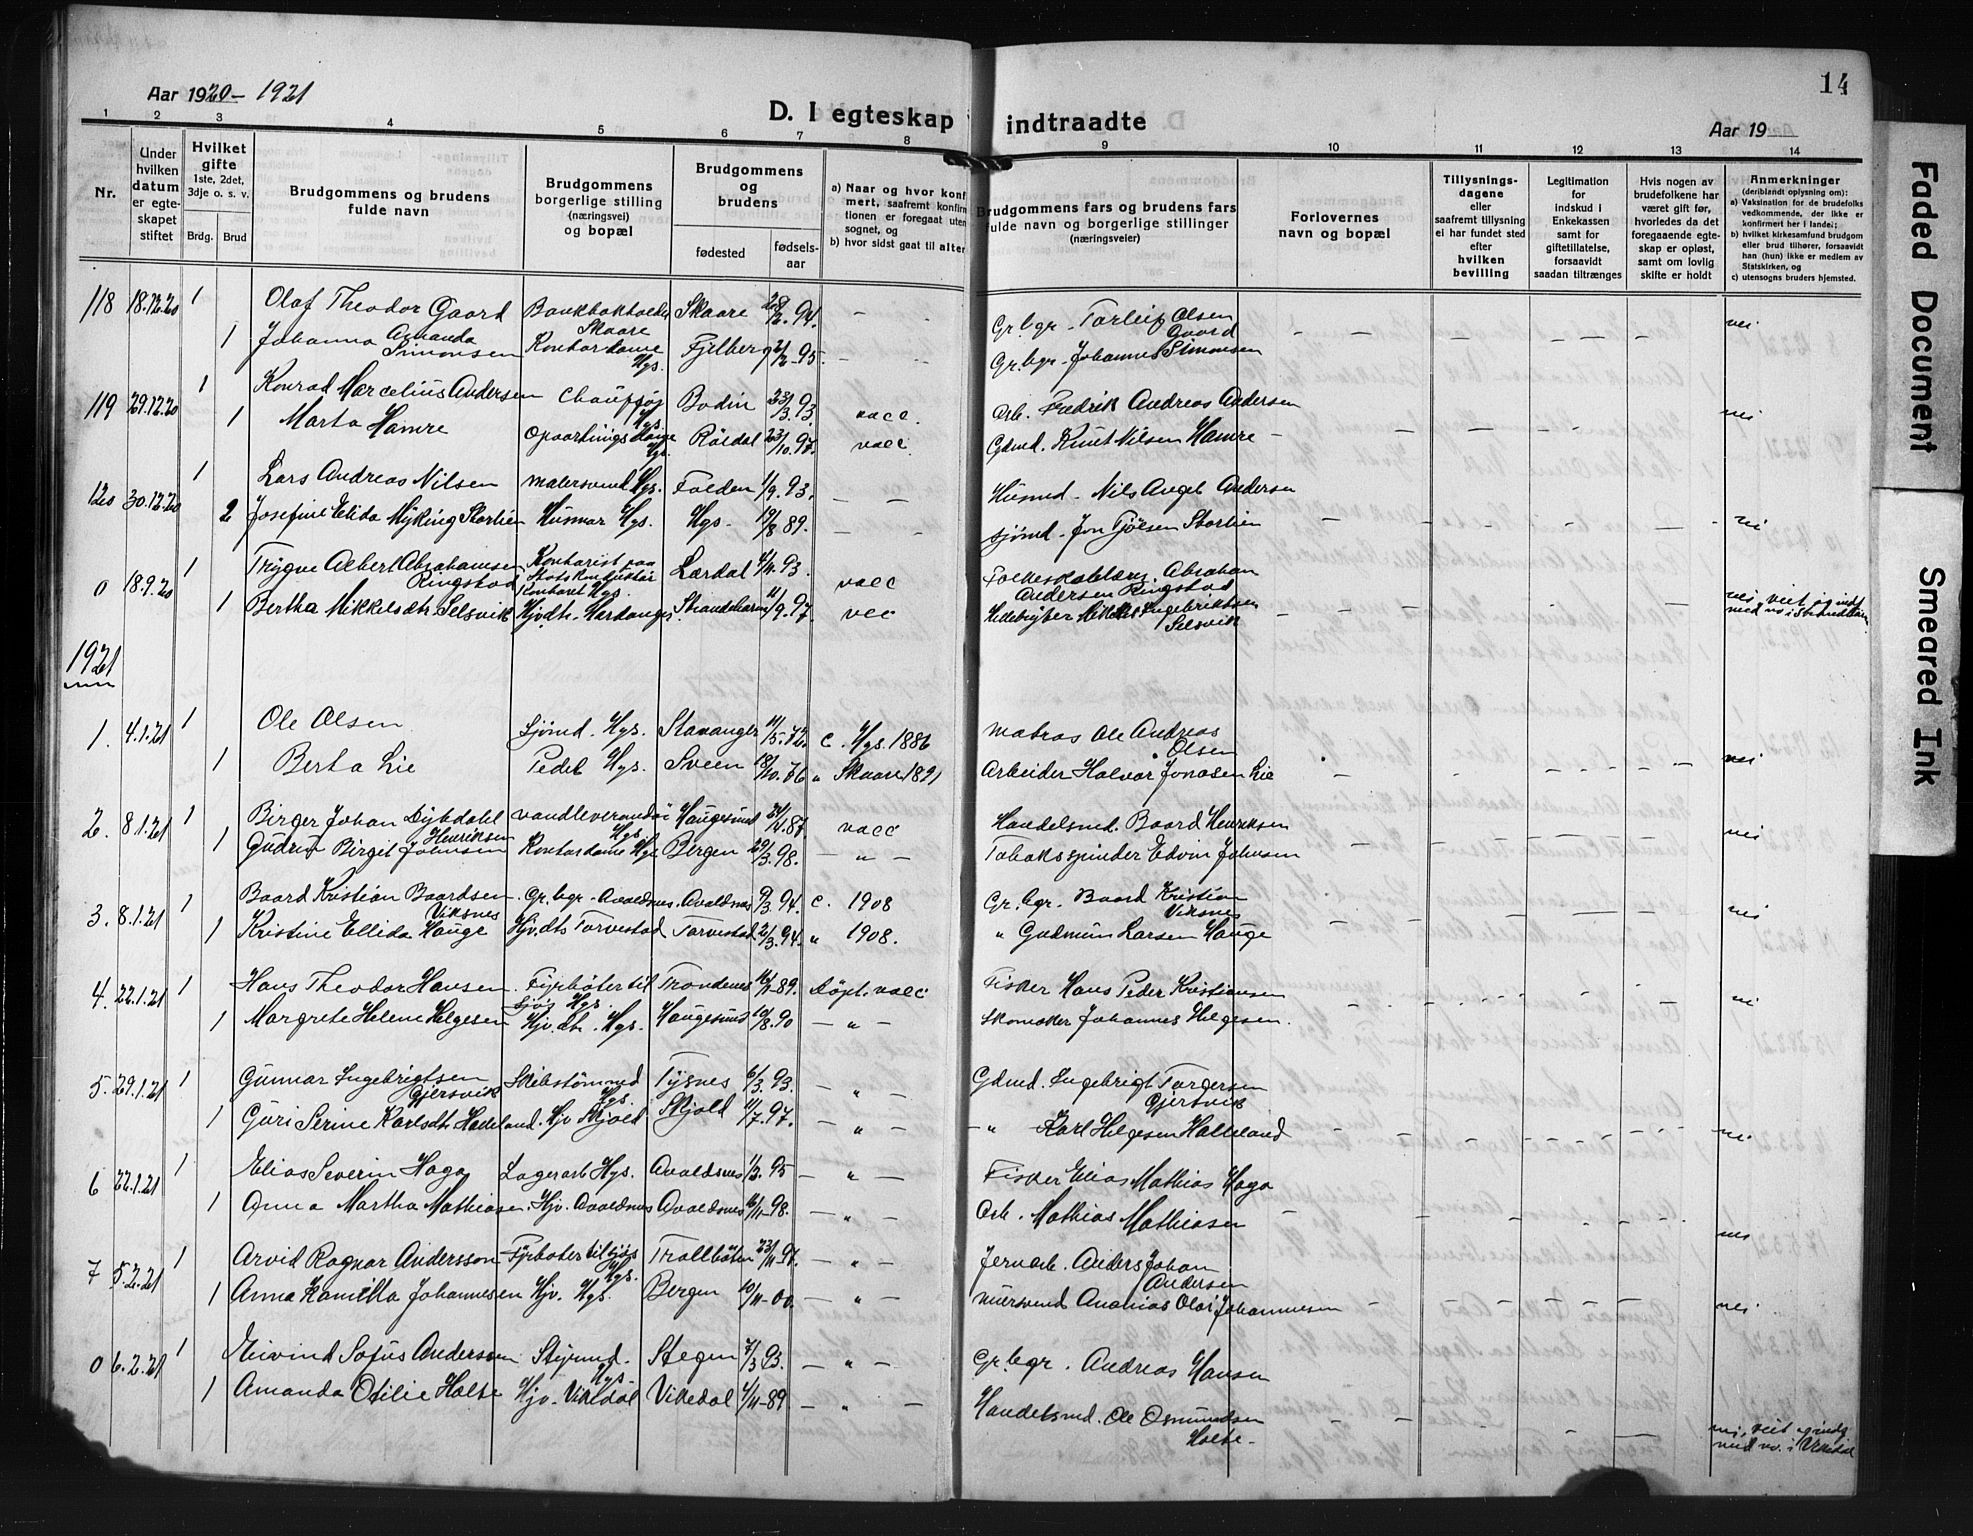 Aar 1920 - 1921
D. I egteskap indtraadte
14
Aar 19
1 2 3 4 5 6 7 8 9 10 11 12 13 14
Nr.
Under hvilken datum er egteskapet stiftet
Hvilket gifte 1ste, 2det, 3dje o. s. v.
Brdg. Brud
Brudgommens og brudens fulde navn
Brudgommens borgerlige stilling (næringsvei) og bopæl
Brudgommens og brudens
fødested
fødsels-aar
a) Naar og hvor konf
mert, saafremt konfirm
tionen er foregaat uten
sognet, og
b) hvor sidst gaat til alter
Brudgommens fars og brudens fars fulde navn og borgerlige stillinger (næringsveier)
Forlovernes navn og bopæl
Tillysnings-dagene eller saafremt tillysning ei har fundet sted efter hvilken bevilling
Legitimation for indskud i Enkekassen samt for giftetillatelse, forsaavidt saadan tiltrænges
Hvis nogen av brudefolkene har været gift før, hvorledes da det foregaaende egteskap er opløst, samt om lovlig skifte er holdt
Anmerkninger
(deriblandt oplysning om):
a) Vaksination for de brudefolks vedkommende, der ikke er konfirmert her i landet;
b) hvilket kirkesamfund brudgom eller brud tilhører, forsaavidt han (hun) ikke er medlem av Statskirken, og
c) utensogns bruders hjemsted.
118 18.12.20 1 Olaf Theodor Gaard Skaare Skaare 94. Gr.bgr. Torleif Olsen Gaard nei
1 Johanna Amanda Simonsen Kontordame Hgs. Fjelberg 95 Gr.bgr. Johannes Simonsen
119 29.12.20 1 Konrad Marcelius Andersen Hgs. Bodin 23/3.93. vacc. Arb. Fredrik Andreas Andersen nei
1 Marta Hamre Hgs. Röldal 23/10.97. vacc. Gdmd. Knut Nilsen Hamre
120 30.12.20 1 Lars Andreas Nilsen malersvend Hgs. Folden 1/9.93. Husmd. Nils Angel Andersen
2 Josefine Elida Myking Storlien Husmor Hgs. Hgs. 19/8 89. sjömd. Jon Storlien nei
0 18.9.20 1 Trygve Albert Abrahamsen Ringstad Kontorist paa Kontoret Hgs. Lærdal 4/11.93. vacc Abraham Andersen Ringstad
1 Bertha Mikkelsdtr. Selsvik Hjvdtr. Hardanger Strandebarm 11/9.97. vcc Ingebriktsen Selsvik nei, viet og indf med no i Strandebarm
1921
1. 4.1.21 1 Ole Olsen Sjömd. Hgs. Stavanger 11/5.72. c. Hgs. 1886 matros Ole Andreas Olsen
1 Berta Lie Hgs. Sveen 18/10.76 „ Skaare 1891 Arbeider Halvor Jonasen Lie nei
2. 8.1.21 1 Birger Johan Dybdahl Henriksen vandleverandör Hgs. Haugesund 87 vacc Handelsmd. Baard Henriksen nei
1 Gudrun Birgit Johnsen Kontordame Hgs Bergen 29/3.98. — „ — Tobakspinder Edvin Johnsen
3. 8.1.21 1 Baard Kristian Baardsen Viksnes Gr.bgr. Avaldsnes. Avaldsnes 9/3.94. c. 1908 Gr.bgr. Baard Kristian Viksnes nei
1 Kristine Ellida Hauge Hjv.dtr Torvestad Torvestad 2/3.94. „ 1908. „ Gudmun Larsen Hauge
4. 22.1.21 1 Hans Theodor Hansen Fyrböter til sjös Hgs. Trondenes 89. döpt. vacc Fisker Hans Peder Kristiansen nei
1 Margrete Helene Helgesen Hjv.dtr. Hgs. Haugesund 10/8.90 — „ — Skomaker Johannes Helgesen.
5. 29.1.21 1 Gunnar Ingebrigtsen Gjersvik Skibstömmerd Hgs. Tysnes 6/3.93. — „ — Gdmd. Ingebrigt Torgersen Gjersvik
1 Guri Serine Karlsdtr. Hadeland. Hjv Skjold Skjold 11/7.97. — „ — — „ Karl Helgesen Halleland nei
6 22.1.21 1 Elias Severin Haga Lagerarb Hgs. Avaldsnes 95 — „ — Fisker Elias Mathias Haga
1 Anna Martha Mathiasen. Hjv. Avaldsnes Avaldsnes 16/11-98. — „ — Arb. Mathias Mathiasen nei
7 5.2.21 1 Arvid Ragnar Andersson Fyrböter til sjös Hgs. Trollhätten 23/11-97. — „ — Jernarb. Anders Johan Andersen
1 Anna Kamilla Johannesen Hjv. Hgs. Bergen 10/11-00. — „ — mursvend Ananias Olai Johannesen nei
0 6.2.21 1 Eivind Sofus Andersen Styrmd. Hgs. Stegen 7/3 93. — „ — Gr.bgr. Andreas Hansen
1 Amanda Otilie Holte Hjv. Vikedal Vikedal 4/11-89. — „ — Handelsmd. Ole Osmundsen Holte nei, viet og indf med no. i Vikedal
Faded Document
Smeared Ink